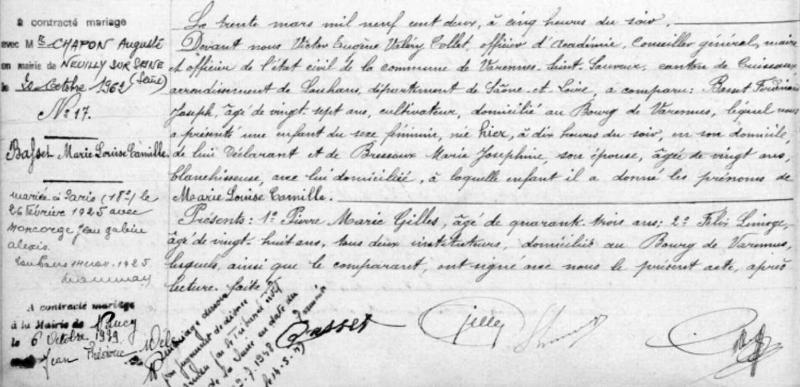 à contracté mariage
avec Mr CHAPON Auguste
en mairie de NEUILLY SUR SEINE
(Seine)
le 20 Octobre 1962
No 17.
Basset Marie Louise Camille
mariée à Paris (18e) le
26 Février 1925 avec
Moncorgé Jean Gabin
Alexis
Louhans 1925
A contracté mariage
à la Mairie de
le 6 Octobre
Jean
Le trente mars mil neuf cent deux, à cinq heures du soir.
Devant nous Victor Eugène Valéry Tollet, officier d'Académie, Conseiller général, maire
et officier de l'état civil de la commune de Varennes-Saint-Sauveur, canton de Cuiseaux
arrondissement de Louhans, département de Saône-et-Loire, a comparu: Basset Ferdinand
Joseph, âgé de vingt-sept ans, cultivateur, domicilié au Bourg de Varennes, lequel nous
a présenté une enfant du sexe féminin, née hier, à dix heures du soir, en son domicile,
de lui déclarant et de Bressoux Marie Joséphine, son épouse, âgée de vingt ans,
blanchisseuse, avec lui domiciliée, à laquelle enfant il a donné les prénoms de
Marie Louise Camille.
Présents: 1o Pierre Marie Gilles, âgé de quarante-trois ans; 2o Félix Limoge,
âgé de vingt-huit ans, tous deux instituteurs, domiciliés au Bourg de Varennes,
lesquels, ainsi que le comparant, ont signé avec nous le présent acte, après
lecture faite.
Mariage dissous
par jugement de divorce
rendu par le Tribunal civil
de la Seine en date du
Basset
Gilles